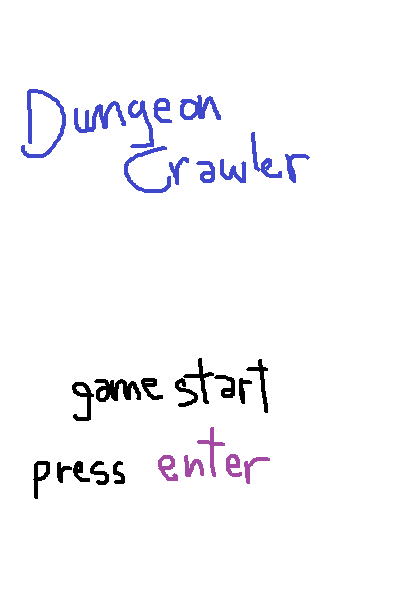 Dungeon
Crawler
game start
press enter